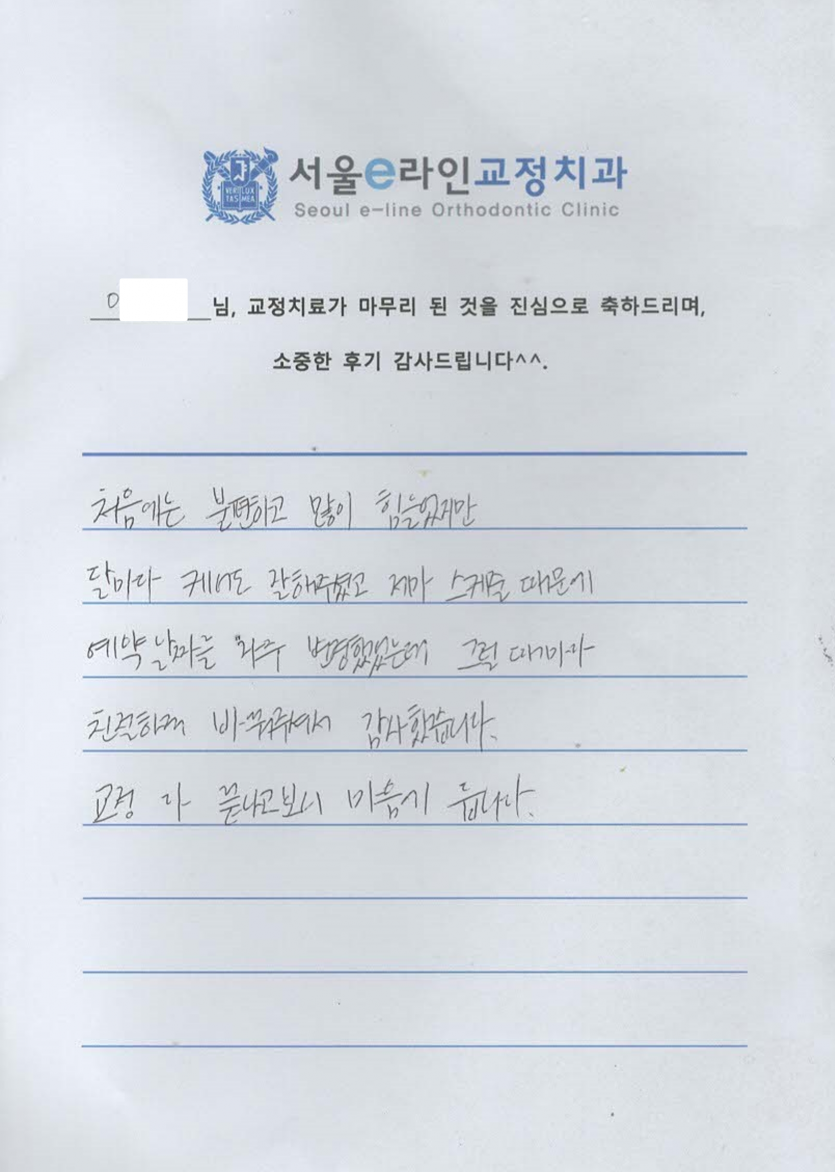 서울e라인교정치과
Seoul e-line Orthodontic Clinic
님, 교정치료가 마무리 된 것을 진심으로 축하드리며,
소중한 후기 감사드립니다^^.
처음에는 불편하고 많이 힘들었지만
달마다 케어도 잘해주셨고 제마 스케줄 때문에
예약날짜를 자주 변경했었는데 그럴 때마다
친절하게 바꿔주셔서 감사했습니다.
교정 다 끝나고보니 마음에 듭니다.